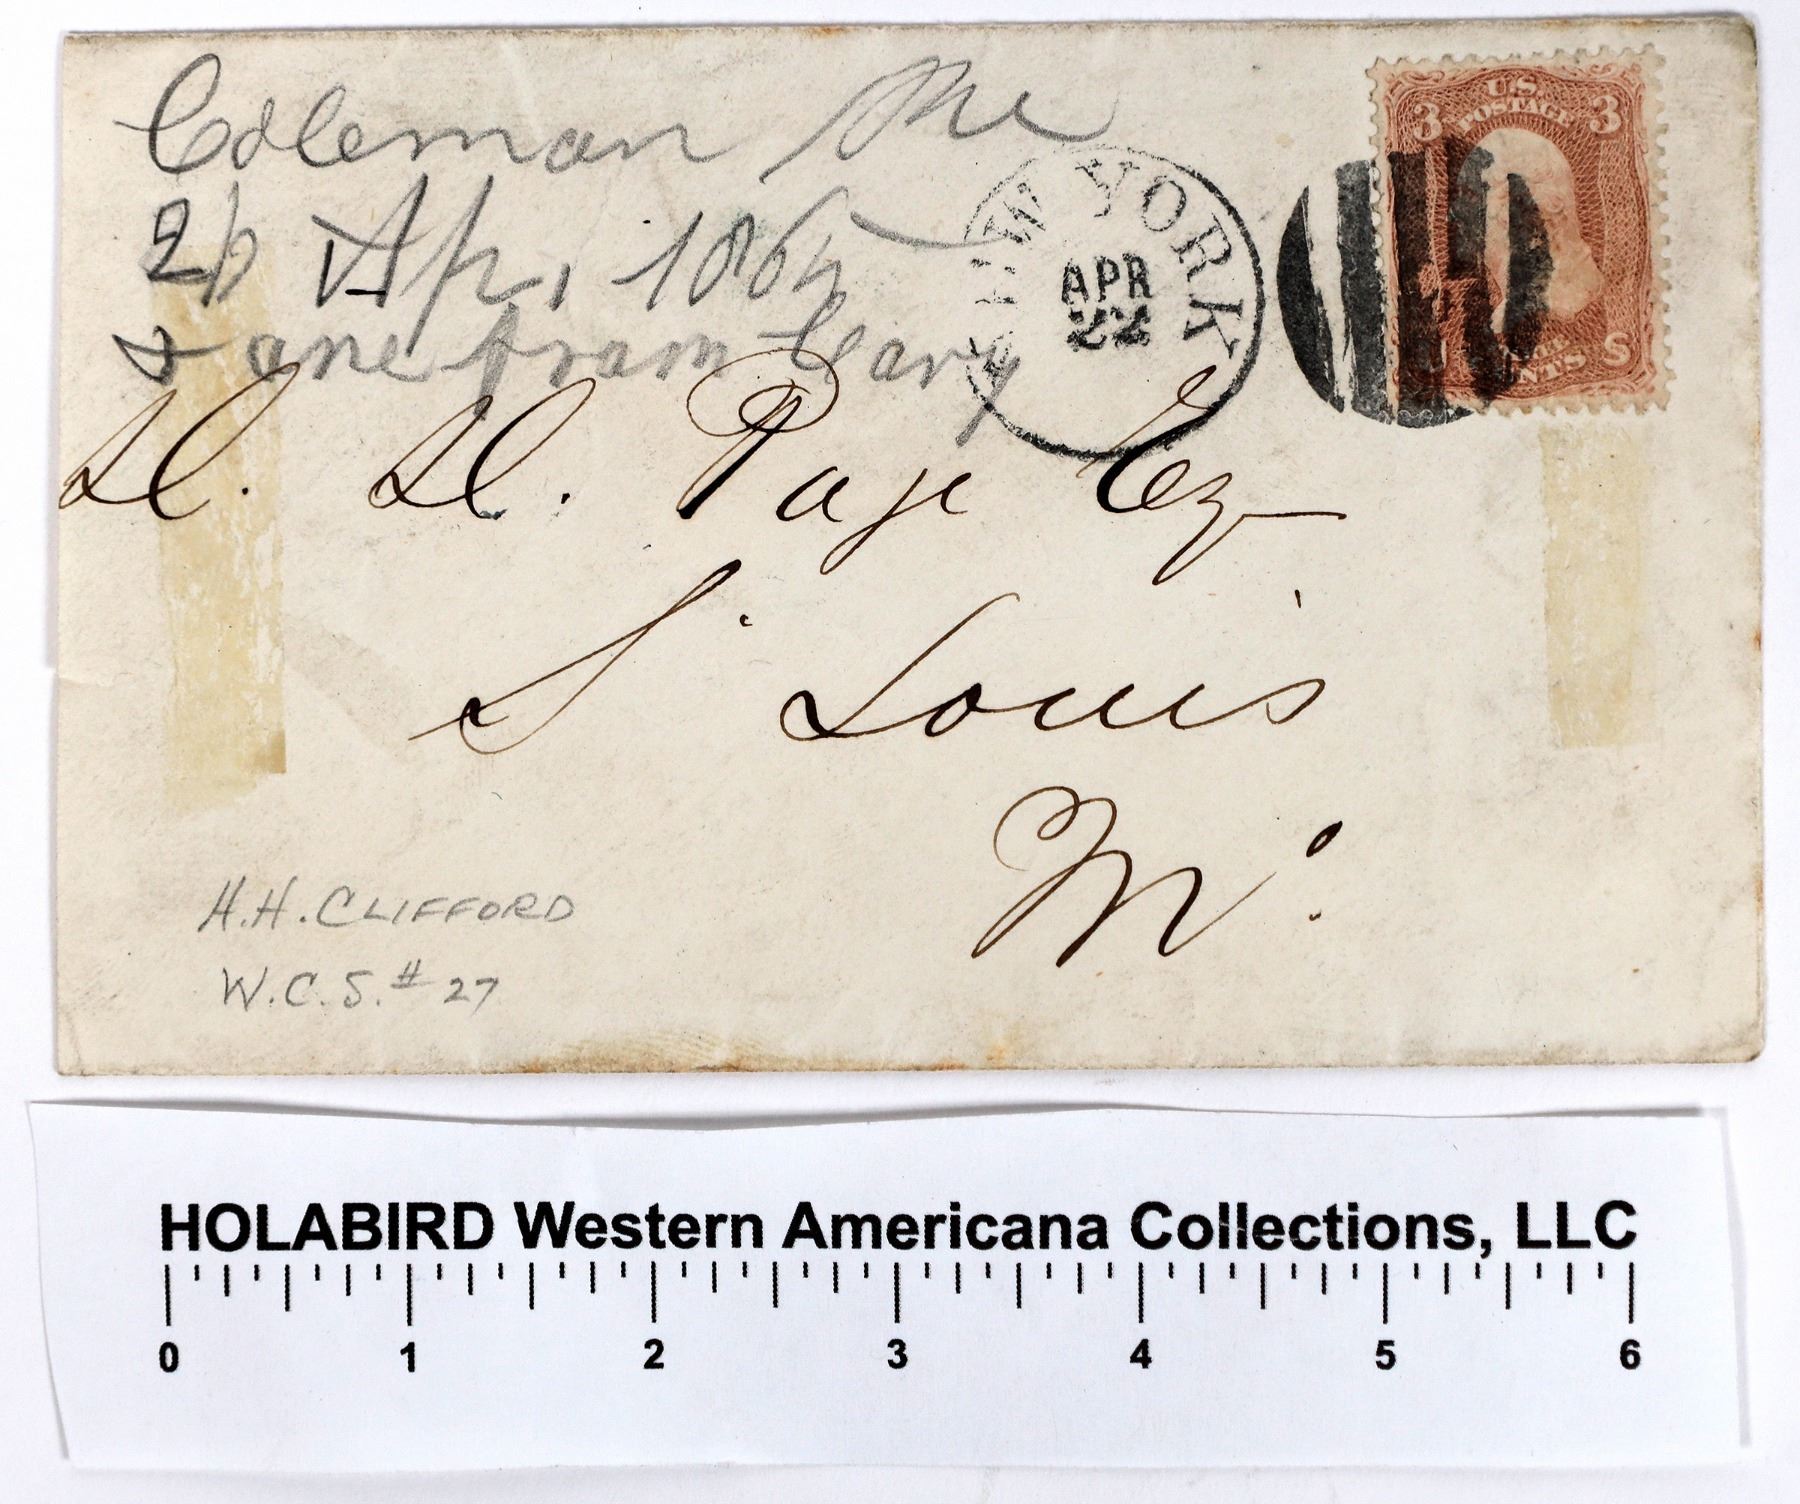 Coleman
Ap, 186
& one from Cary
NEW YORK
APR
22
U.S.
POSTAGE
3 3
CENTS
D. D. Page Esq
St Louis
Mo
H.H. CLIFFORD
W.C.S. # 27
HOLABIRD Western Americana Collections, LLC
0 1 2 3 4 5 6